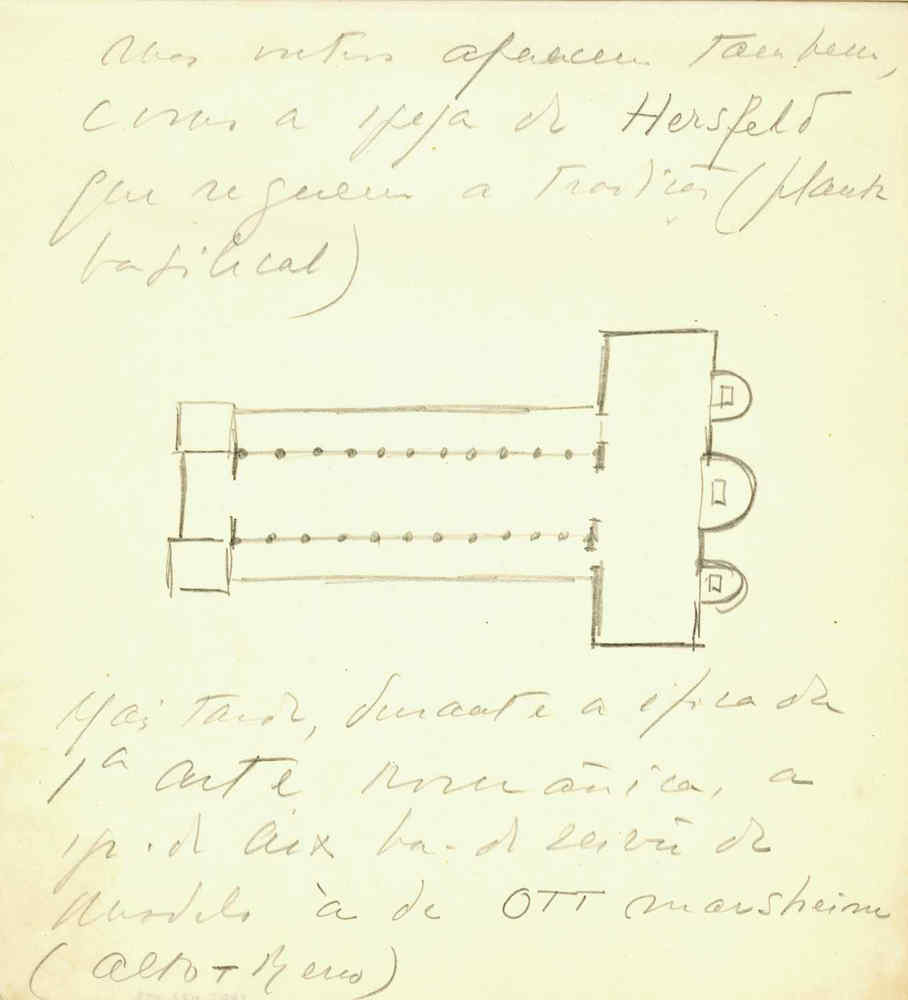 Mas outros aparecem tambem,
como a igreja de Hersfeld
que seguem a tradição (planta
basilical)
Mais tarde, durante a época da
1ª arte românica, a
igr. de Aix ha-de servir de
modelo à de OTTmarsheim
(alto-Reno)